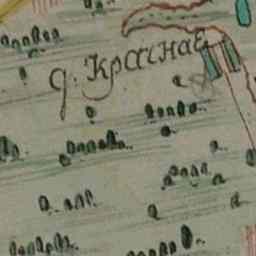 д. Краснаѣ